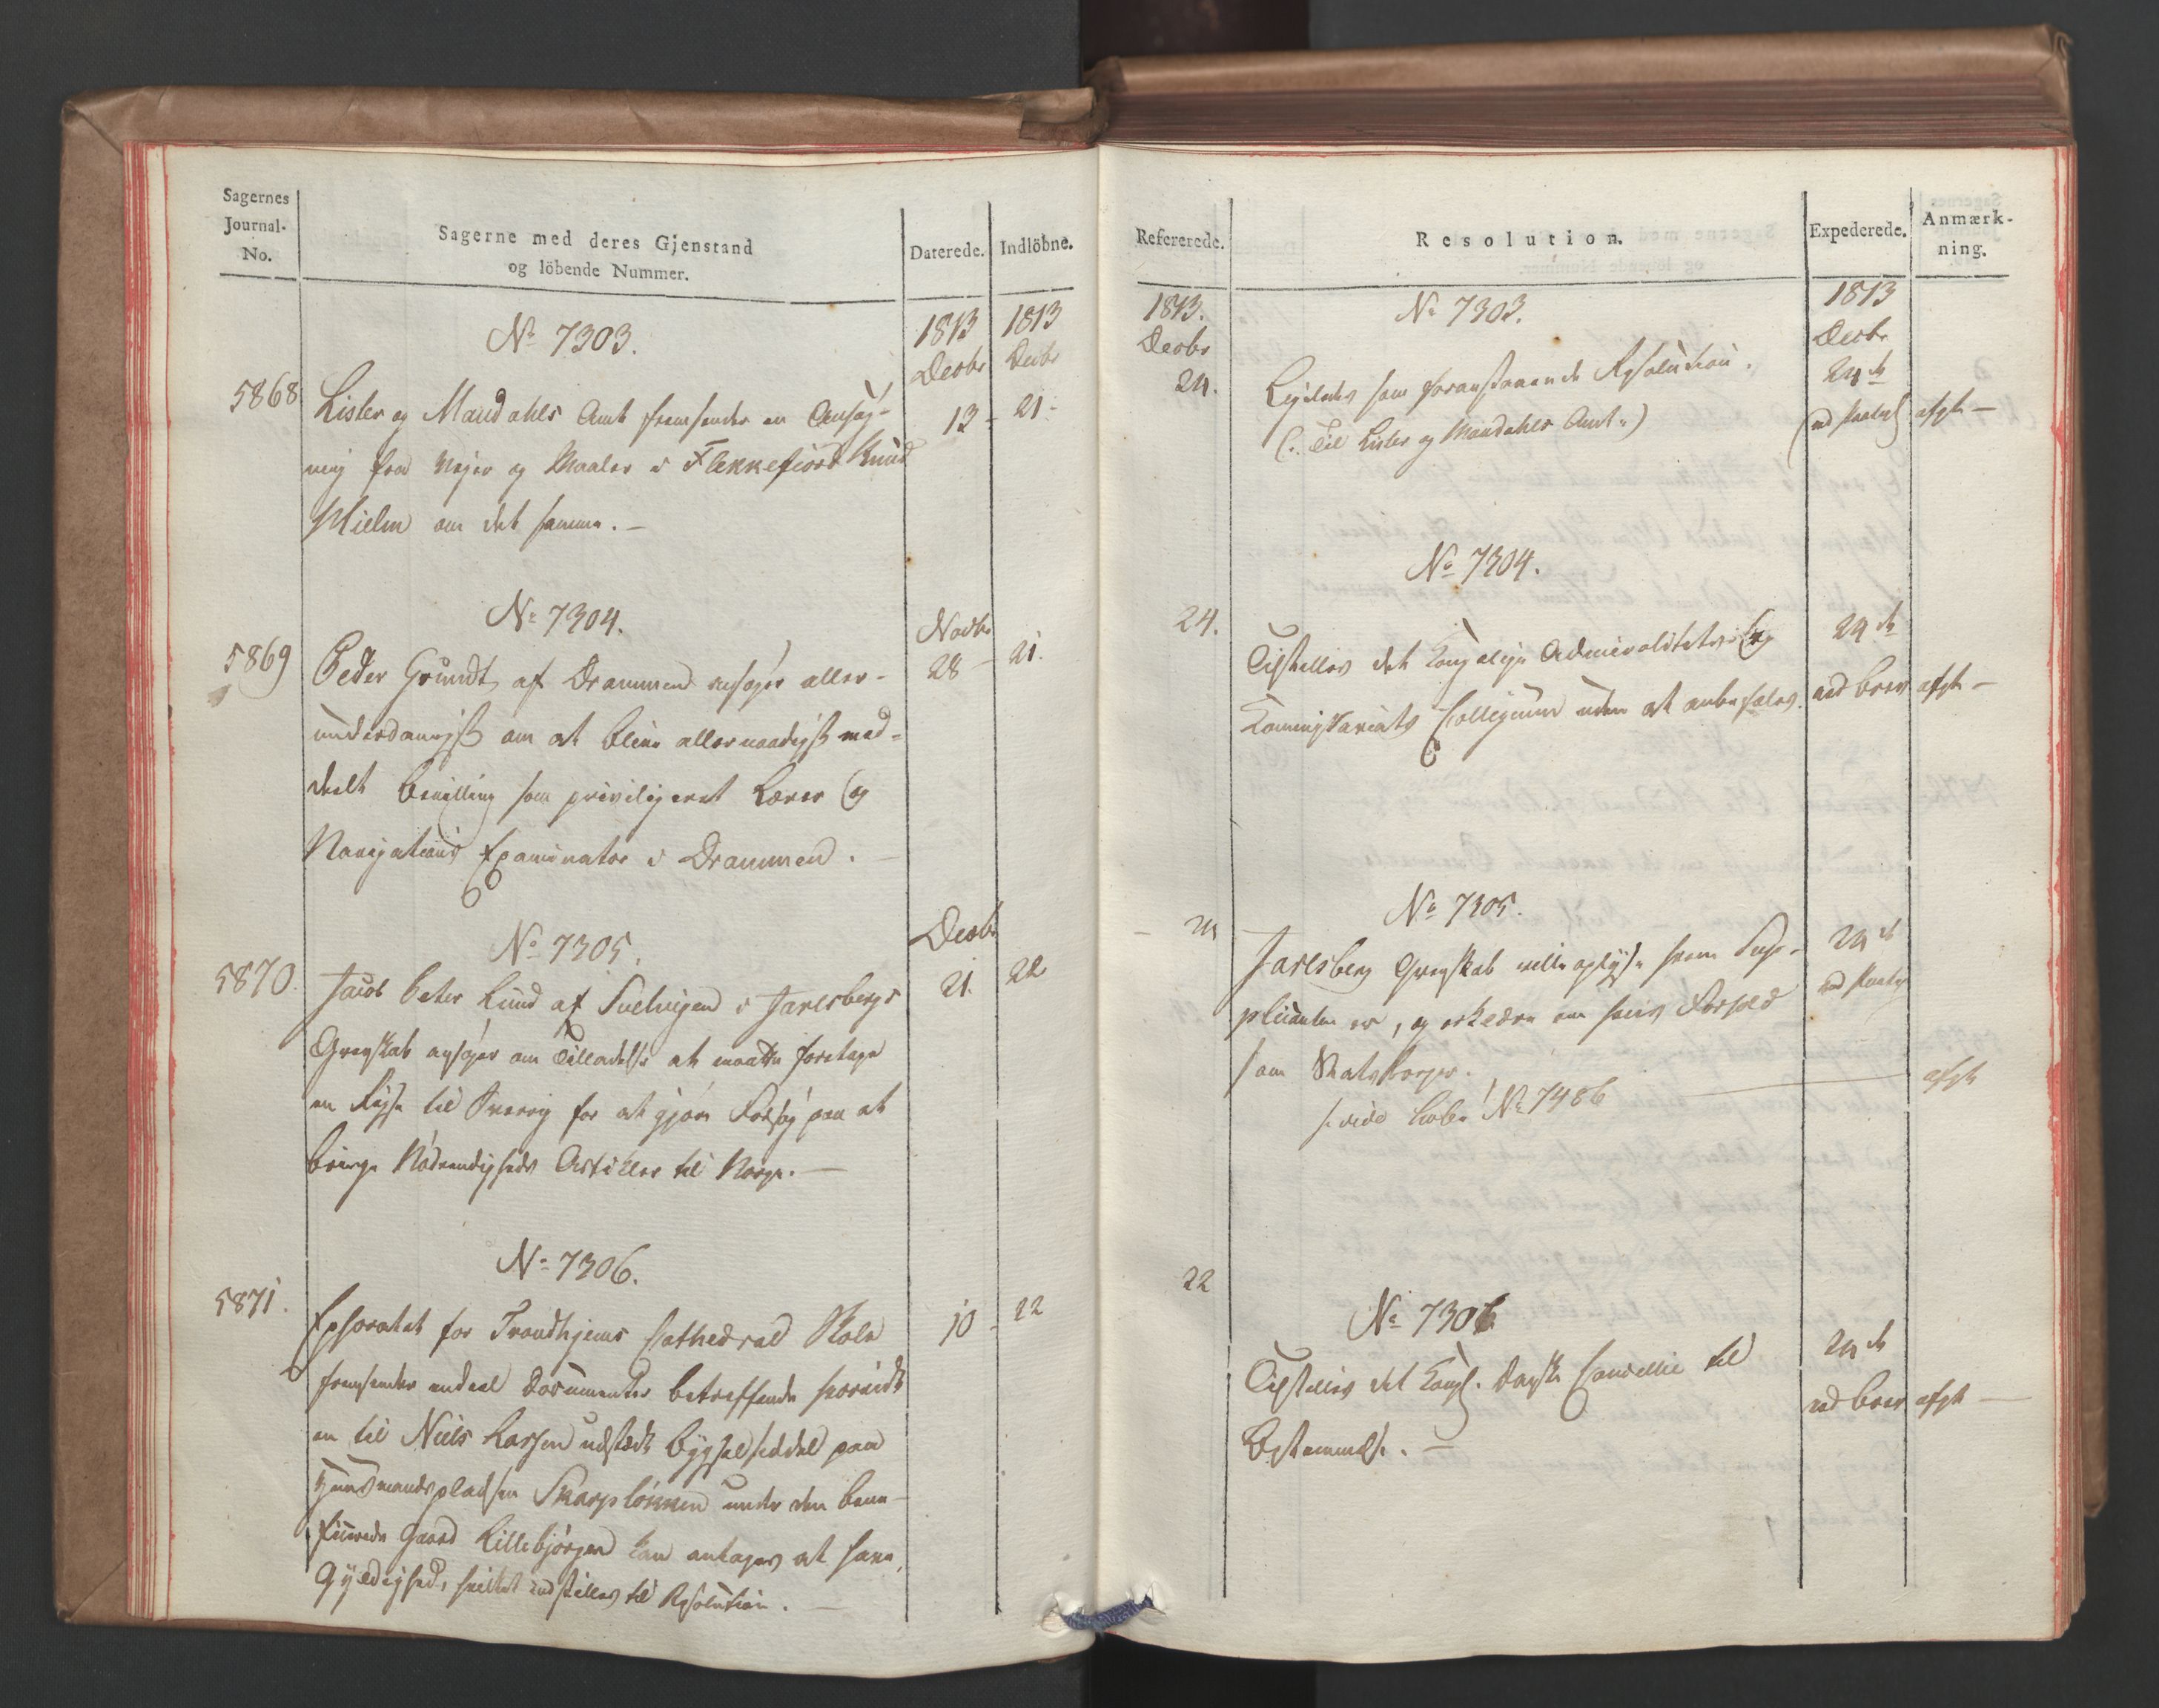 Sagernes
Journal-
No.
Sagerne med deres Gjenstand
og löbende Nummer.
Daterede.
Indlöbne.
No 7303.
1813
Decbr
1813
Decbr
5868
Lister og Mandahls Amt fremsender en Ansøg-
13 -
21 -
ning fra Vejer og Maaler i Flekkefiord Knud
Hielm om det samme. —
No 7304.
Novbr
5869
Peder Grundt af Drammen ansøger aller-
28 -
21.
underdanigst om at blive allernaadigst med-
deelt Bevilling som privilegeret Lærer og
Navigations Examinator i Drammen. —
No 7305.
Decbr
5870.
Jacob Peter Lund af Svelvigen i Jarlsbergs
21.
22
Grevskab ansøger om Tilladelse at maatte foretage
en Reise til Sverrig for at gjøre Forsøg paa at
bringe Nødvendigheds Artikler til Norge. —
No 7306.
5871.
Ephoratet for Trondhjems Cathedral Skole
10 -
22
fremsender endeel Documenter betreffende hvorvidt
en til Niels Larsen udstædt Bygselseddel paa
Huusmandspladsen Skarpløkken under den bene-
ficerede Gaard Lillebjørgen kan antages at have
Gyldighed, hvilket indstilles til Resolution. —
Refererede.
Resolution.
Expederede.
Anmærk-
ning.
1813.
Decbr
24.
No 7303.
1813
Decbr
24de
Ligeledes som foranstaaende Resolution.
ad Paategn
afgt —
(: Til Lister og Mandahls Amt :)
No 7304.
24.
Tilstilles det Kongelige Admiralitets og
24de
Kommissariats Collegium uden at anbefales.
ved Brev
afgt —
No 7305.
24
Jarlsberg Grevskab ville oplyse hvem Sup-
24de
plicanten er, og erklære om hans Forhold
ved Paategn
som Statsborger.
/: vide Løbe No 7486
afgt
22
No 7306
Tilstilles det Kongl. Danske Cancellie til
24de
Bestemmelse. —
ved Brev
afgt —